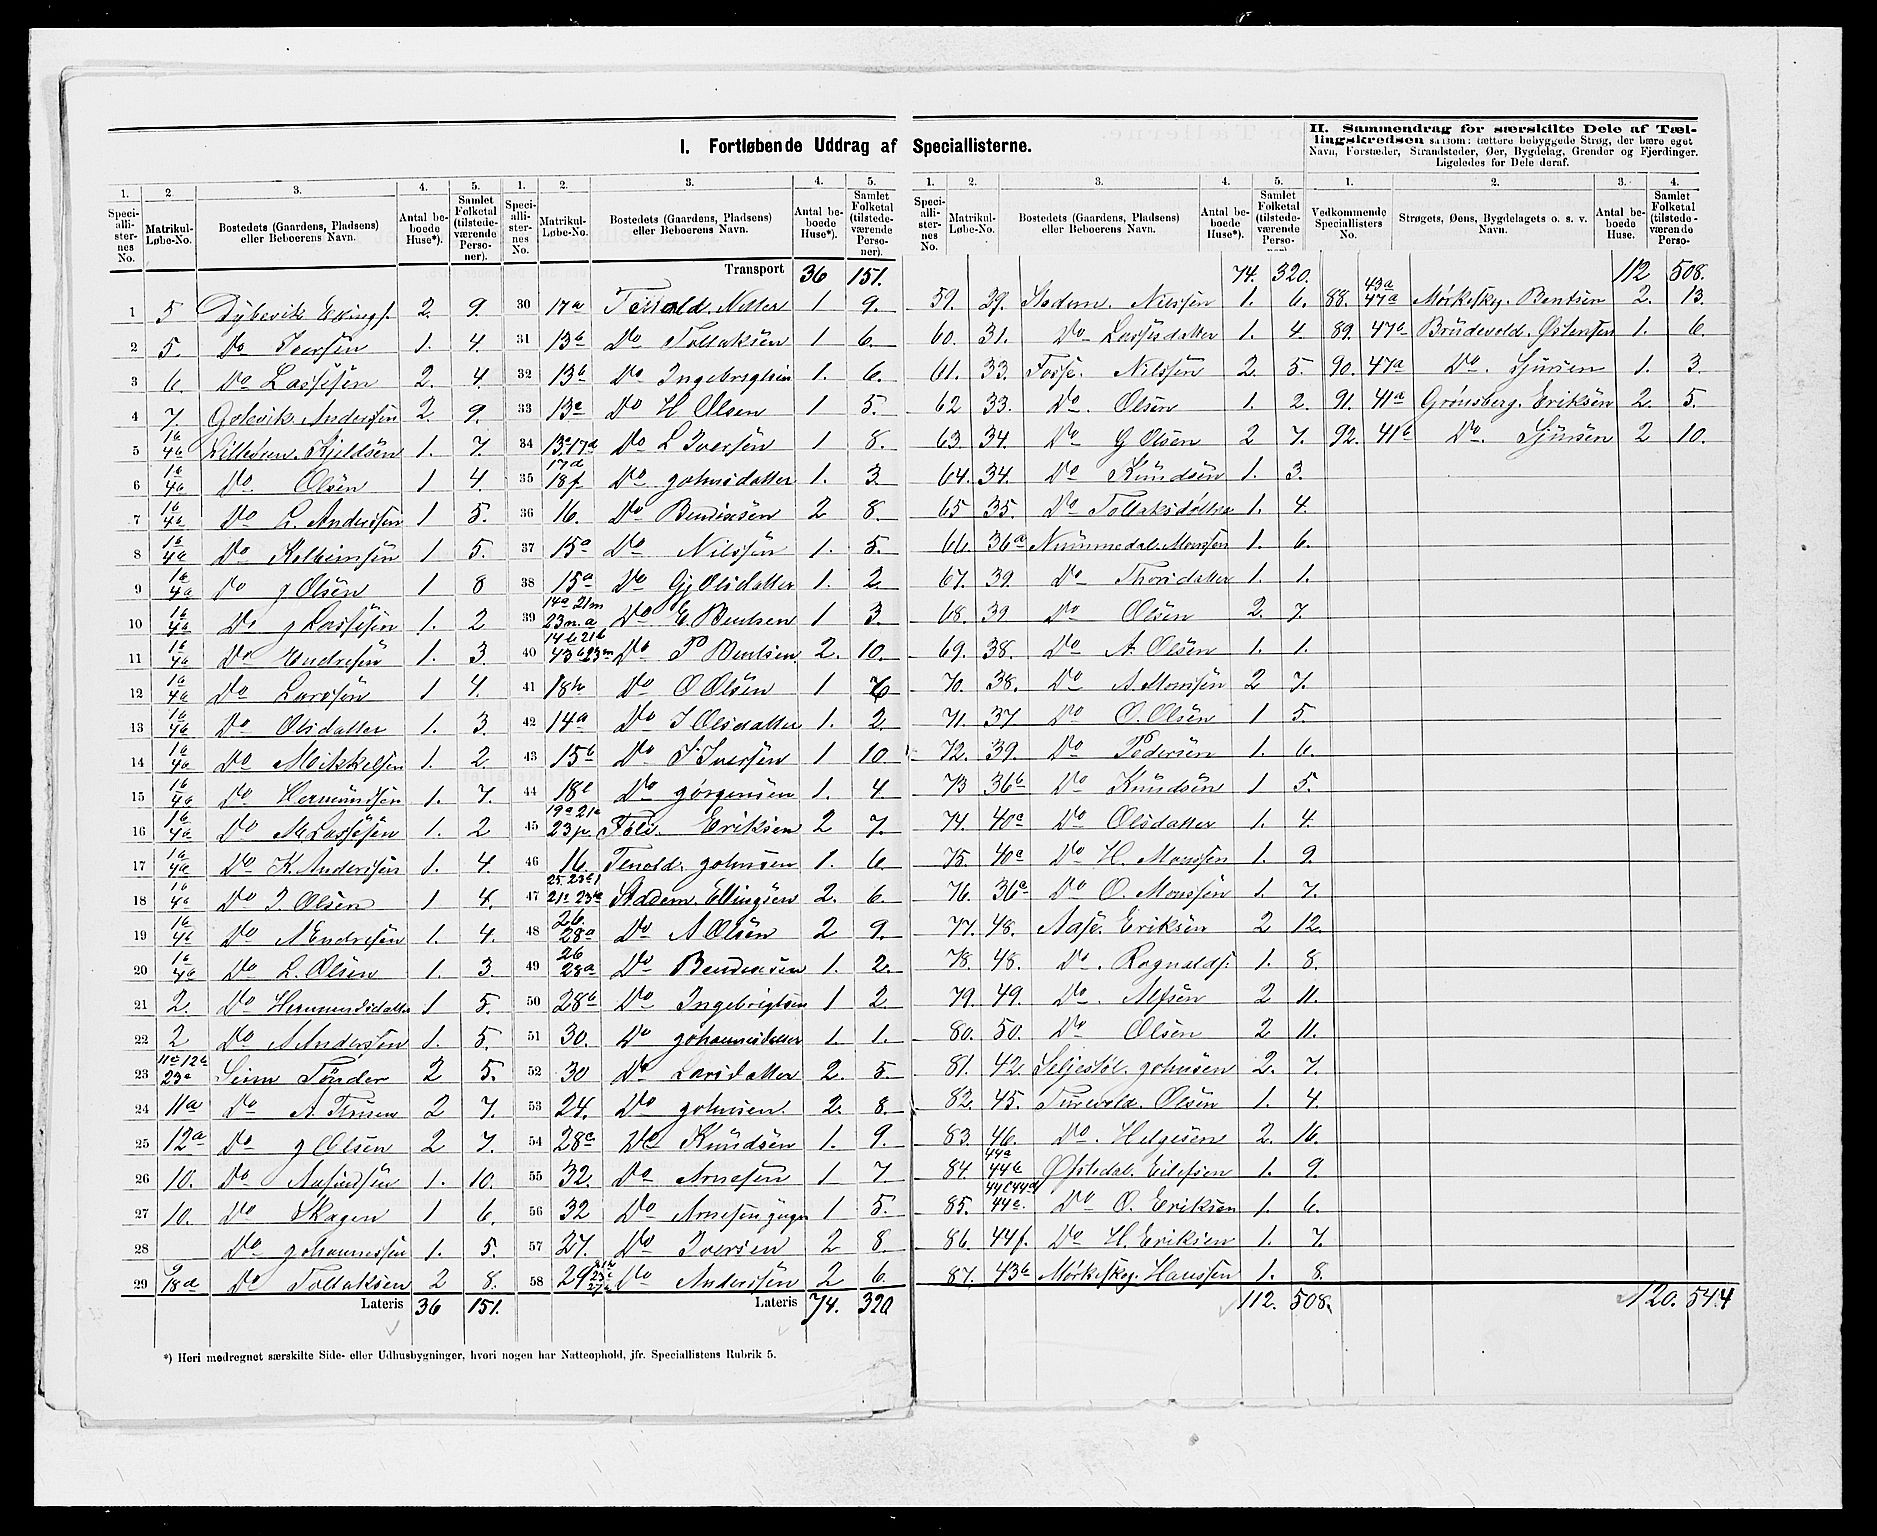 I. Fortløbende Uddrag af Speciallisterne.
II. Sammendrag for særskilte Dele af Tæl-
lingskredsen saasom: tættere bebyggede Strøg, der bære eget
Navn, Forstæder, Strandsteder, Øer, Bygdelag, Grender og Fjerdinger.
Ligeledes for Dele deraf.
1. 2. 3. 4. 5. 1. 2. 3. 4. 5.
Speci-alli-ster-nes No. Matrikul-Løbe-No. Bostedets (Gaardens, Pladsens) eller Beboerens Navn. Antal be-boede Huse*). Samlet Folketal (tilstede-værende Perso-ner).
Speci-alli-ster-nes No. Matrikul-Løbe-No. Bostedets (Gaardens, Pladsens) eller Beboerens Navn. Antal be-boede Huse*). Samlet Folketal (tilstede-værende Perso-ner).
1 5 Dybevik Ellings. 2. 9.
2 5. Do Iversen 1. 4.
3 6. Do Lassesen 2. 4.
4 7. Golevik Anderssen 2. 9.
5 1b 4a Kjeldsen 1. 7.
6 1b 4a Do Olsen 1 4.
7 1b 4a Do L. Anderssen 1 5.
8 1b 4a Do Kolbeinsen 1 5.
9 1b 4a Do J Olsen 1 8
10 1b 4a Do J Lassesen 1. 2
11 1b 4a Do Endresen 1. 3.
12 1b 4a Do Larssen 1 4.
13 1b 4b Do Olsdatter 1. 3.
14 1b 4a Do Mikkelsen 1. 2.
15 1b 4a Do Hermundsen 1. 7.
16 1b 4a Do M Lassesen 1. 2
17 1b 4a Do K. Anderssen 1. 4.
18 1b 4a Do I. Olsen 1 4.
19 1b 4b Do A Endresen 1. 4.
20 1b 4b Do L. Olsen 1. 3.
21 2. Do Hermundsdatter 1 5.
22 2 Do A Anderssen 1. 5.
23 11c 12b 23a Seim Tønder 2 5.
24 11a Do A. 2 7.
25 12a Do J Olsen 2 7.
26 10. Do 1. 10.
27 10. Do Skagen 1 6.
28 Do Johannessen 1. 5.
29 9 18d Do Tollaksen 2 8.
Lateris 36 151.
Transport 36 151.
30 17a Tenold. Netter 1 9.
31 13b Do Tollaksen 1 6.
32 13b Do Ingebrigtsen 1. 6.
33 13c Do H Olsen 1 5.
34 13c 17d Do L Iversen 1 8.
35 17d 18f Do Johnsdatter 1. 3.
36 16. Do Bendixsen 2 8.
37 15a Do Nilssen 1. 5.
38 15a Do Gj Olsdatter 1. 2.
39 14a 21m 23n.a Do E. Bentsen 1 3.
40 14b 21b 43b 23m Do P Bentsen. 2. 10.
41 18h Do O Olsen 1 6
42 14a Do I Olsdatter 1. 2
43 15b Do I Iversen 1 10
44 18e Do Jørgensen 1. 4.
45 19a 21a 23p Eriksen 2 7.
46 16. Tenold. Johnsen 1. 6.
47 Stadem. Ellingsen 2. 6.
48 26. 28a Do A Olsen 2 9.
49 26 28a Do Bendixsen 1. 2.
50 28b Do Ingebrigtsen 1 2.
51 30. Do Johannesdatter 1. 1.
52 30 Do Larsdatter 2. 5.
53 24. Do Johnsen. 2. 8.
54 28c Do Knudsen 1. 9.
55 32. Do Arnesen 1 7.
56 32 Do Arnesen 1 5.
57 27. Do Iversen 2 8.
58 29 Do Anderssen 2 6.
Lateris 74. 320
*) Heri medregnet særskilte Side- eller Udhusbygninger, hvori nogen har Natteophold, jfr. Speciallistens Rubrik 5.
1. 2. 3. 4. 5. 1. 2. 3. 4.
Speci-alli-ster-nes No. Matrikul-Løbe-No. Bostedets (Gaardens, Pladsens) eller Beboerens Navn. Antal be-boede Huse*). Samlet Folketal (tilstede-værende Perso-ner).
Vedkommende Speciallisters No. Strøgets, Øens, Bygdelagets o. s. v. Navn. Antal be-boede Huse. Samlet Folketal (tilstede-værende Perso-
74. 320.
59. 29. Stadem. Nilssen 1. 6.
60. 31. Do Lassesdatter 1. 4.
61. 33. Fosse. Nilssen 2 5.
62 33. Do. Olsen 1. 2.
63 34. Do G Olsen 2 7.
64. 34. Do Knudsen 1. 3.
65 35. Do Tollaksdotter 1. 4.
66. 36a Nummedal. Monssen 1. 6.
67. 39. Do Thorsdatter 1. 1.
68. 39 Do Olsen 2. 7.
69. 38. Do A. Olsen 1. 1.
70. 38. Do A. Monssen 2 7.
71. 37 Do O. Olsen 1 5.
72. 39. Do Pedersen 1. 6.
73 36b Do Knudsen 1 5.
74. 40a Do Olsdatter 1. 4.
75. 40a Do H. Monssen 1. 9.
76. 36a Do O. Monssen 1. 7.
77. 48. Aase. Eriksen 2 12.
78. 48. Do. Ragnalds. 1. 8.
79. 49. Do. Alfsen 2 11.
80. 50. Do Olsen 2 11.
81. 42. Seljestøl. Johnsen 2. 7.
82. 45. Turevold. Olsen 1. 4.
83. 46. Do. Helgesen 2. 16.
84. 44a 44b Østedal. Eilefsen 1. 9.
85. 44c 44d 44e. Do O. Eriksen 1. 6.
86. 44f. Do H. Eriksen 1. 7.
87. 43b Mørkeskog. Hanssen 1. 8.
112. 508.
112 508.
88. 43a 47a Mørkeskog. Bentsen 2. 13.
89. 47a Brudevold. Østensen 1. 6.
90. 47a Do. Sjursen 1. 3.
91. 41a Grønsberg. Eriksen 2. 5.
92. 41b Do. Sjursen 2 10.
120. 544